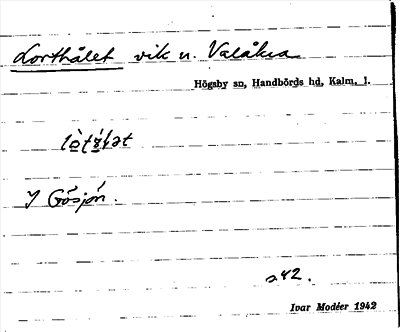 Lorthålet vik n. Valåkra
Högsby sn, Handbörds hd, Kalm. l.
I Gösjön.
242.
Ivar Modéer 1942